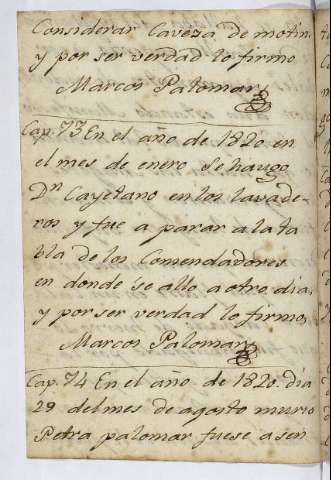 Considerar Caveza de motin
y por ser verdad lo firmo
Marcos Palomar
Cap. 73 En el año de 1820 en
el mes de enero se haugo
Dn Cayetano en los lavade-
ros y fue a parar a la ta
bla de los Comendadores
en donde se allo a otro dia,
y por ser verdad lo firmo,
Marcos Palomar
Cap. 74 En el año de 1820. dia
29 del mes de agosto murio
Petra palomar fuese a sen